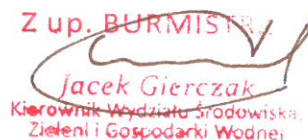 Z up. BURMISTRZ
Jacek Gierczak
Kierownik Wydziału Środowiska
Zieleni i Gospodarki Wodnej